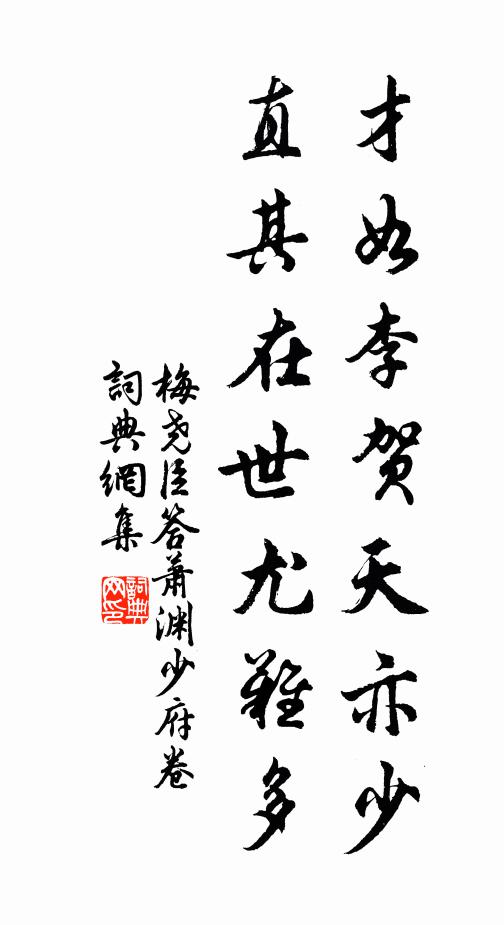 才如李贺天亦少
直其在世尤難多
梅尧臣答萧渊少府卷
詞典網集
詞典
网印